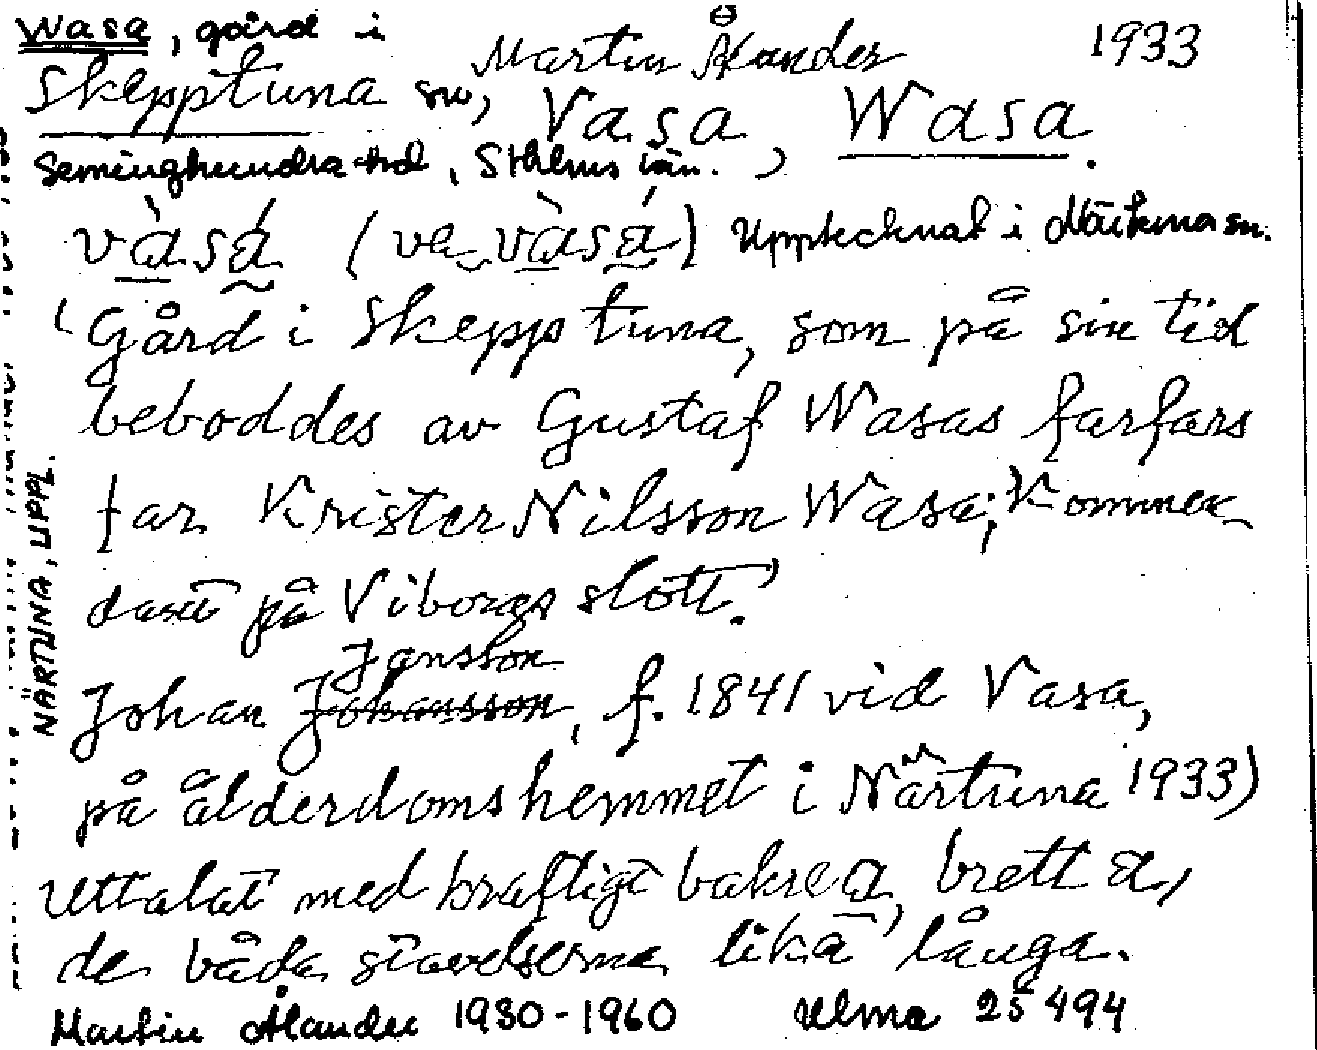 Wasa, gård i
Martin Ålander 1933
Skepptuna sn,
Vasa, Wasa.
Seminghundra hd, Sthlms län.
vàsá (va vàsá) Upptecknat i Närtuna sn.
"Gård i Skepptuna, som på sin tid
beboddes av Gustaf Wasas farfars
far Krister Nilsson Wasa, Kommen-
dant på Viborgs slott."
Johan Johansson Jansson, f. 1841 vid Vasa,
på ålderdomshemmet i Närtuna 1933)
Uttalat med kraftigt bakre a, brett a,
de båda stavelserna lika långa.
Martin Ålander 1930-1960 Ulma 25494
NÄRTUNA, UPPL.